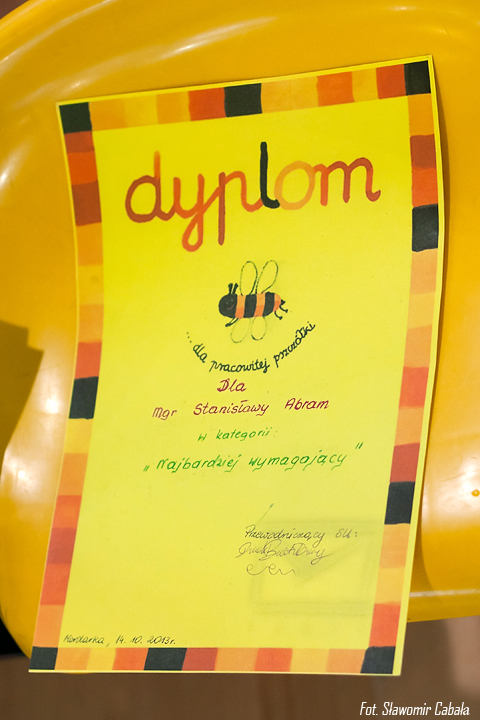 dyplom
...dla pracowitej pszczółki
Dla
Mgr Stanisławy Abram
w kategorii:
„Najbardziej wymagający"
Przewodniczący SU:
14.10.2013r.
Fot. Sławomir Cabała